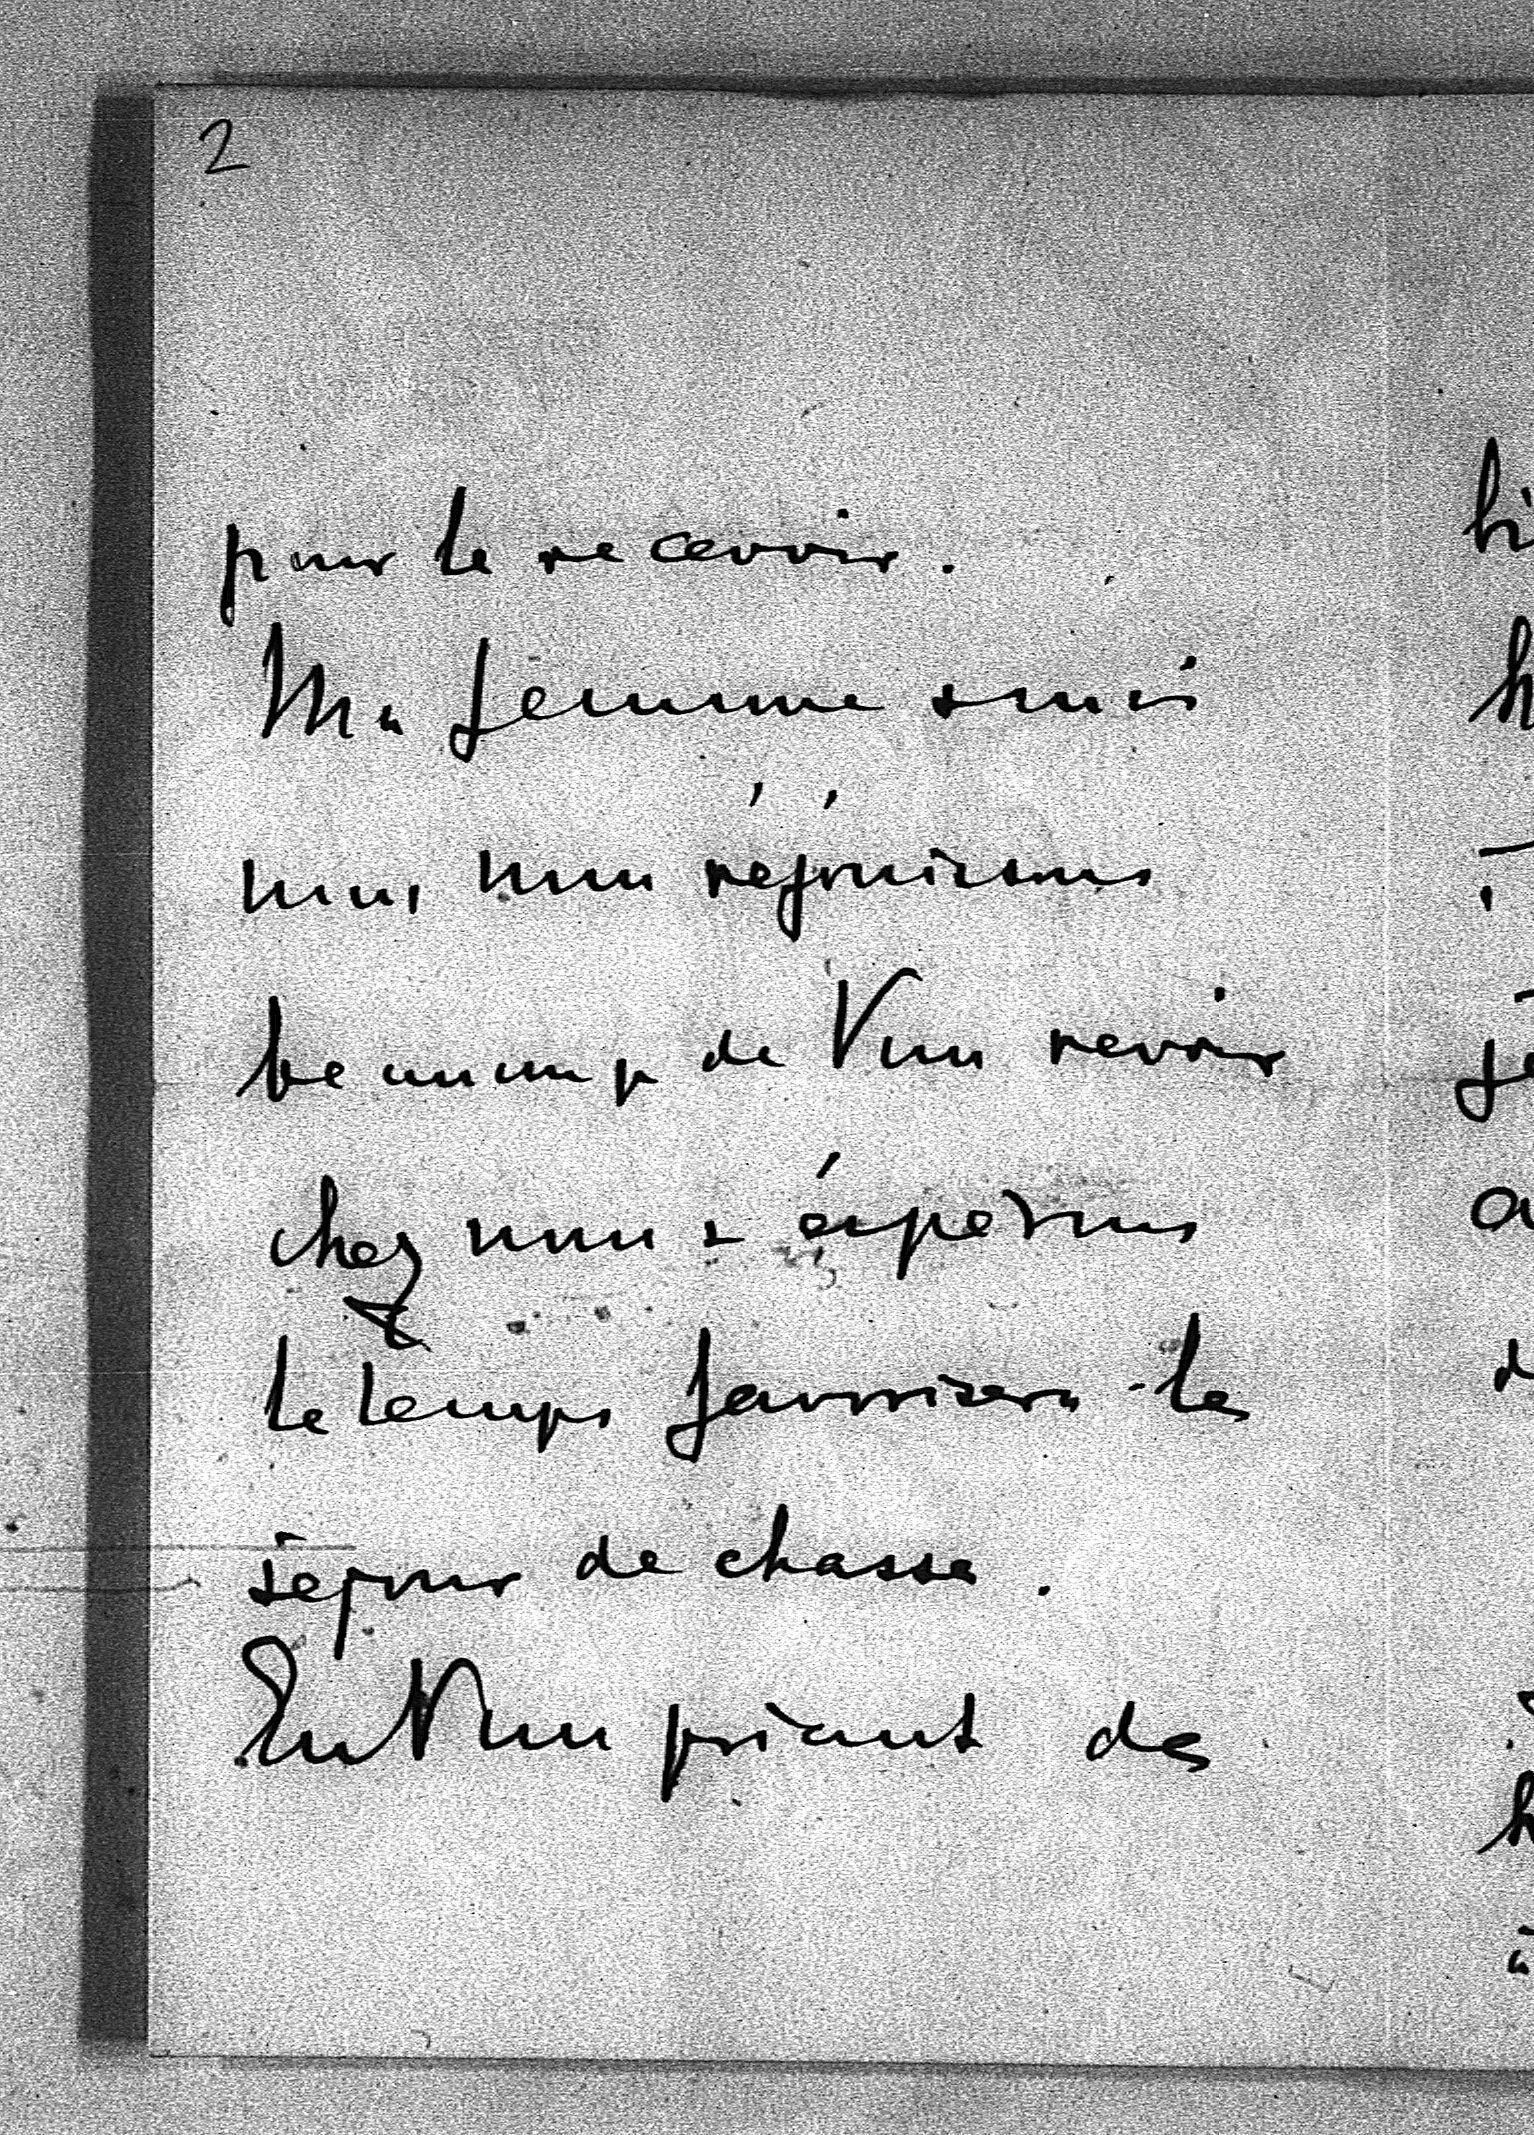 2
pour le recevoir.
Ma femme & moi
nous nous réjouissons
beaucoup de Vous revoir
chez nous & espérons
le temps favorisera le
séjour de chasse.
En Vous priant de